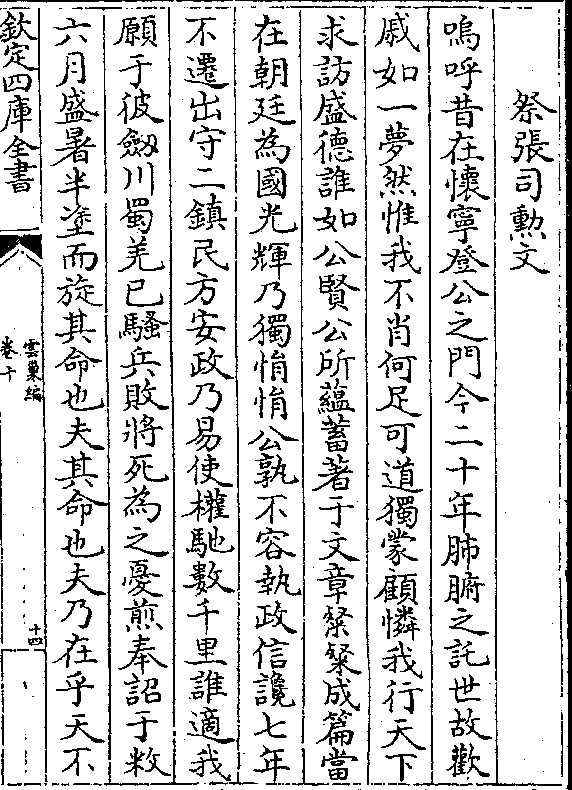 祭張司勲文
嗚呼昔在懷寧登公之門今二十年肺腑之託世故歡
戚如一夢然惟我不肖何足可道獨蒙顧憐我行天下
求訪盛德誰如公賢公所蘊蓄著于文章粲粲成篇當
在朝廷為國光輝乃獨悁悁公孰不容執政信讒七年
不遷出守二鎮民方安政乃易使權馳數千里誰適我
願于彼劔川蜀羌已騷兵敗將死為之憂煎奉詔于敕
六月盛暑半塗而旋其命也夫其命也夫乃在乎天不
欽定四庫全書
雲巢編
卷十
十四